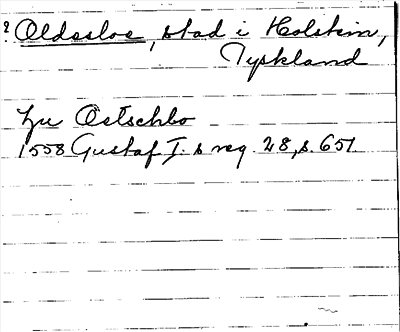 ? Oldesloe, stad i Holstein,
Tyskland
zu Oeltschlo
1558 Gustaf I. s reg. 28, s. 651.